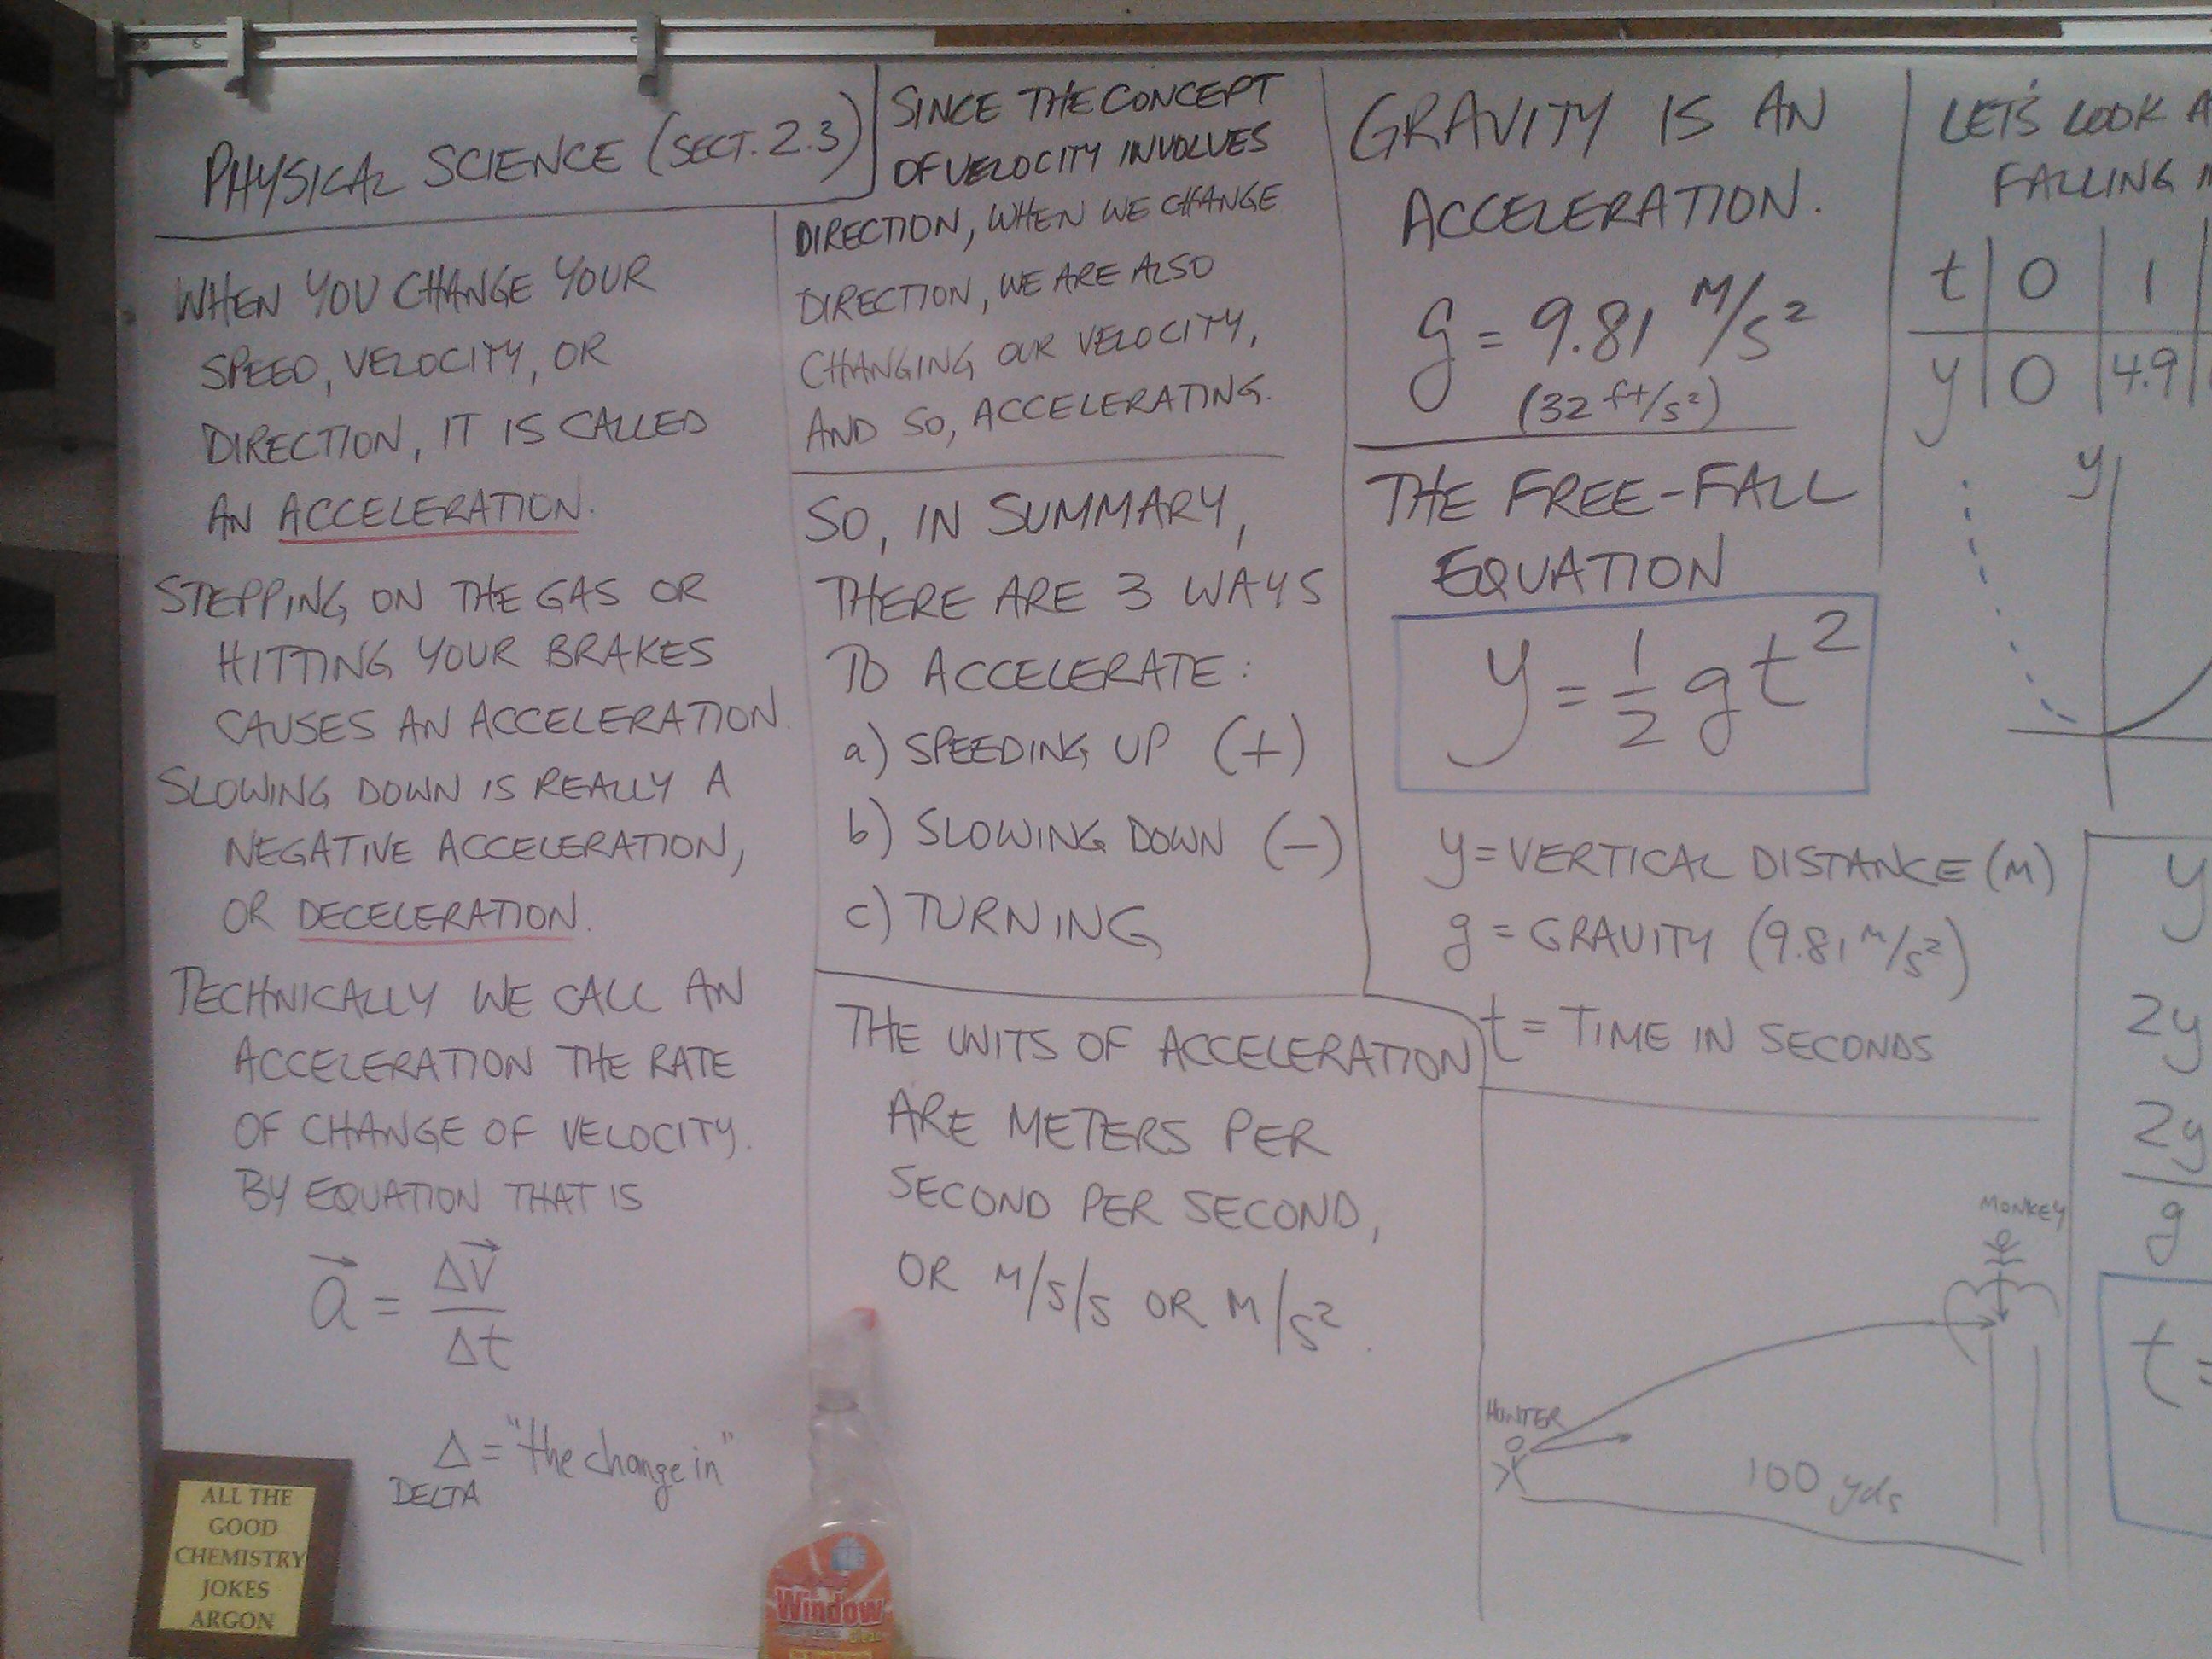 PHYSICAL SCIENCE (SECT. 2.3)
WHEN YOU CHANGE YOUR
SPEED, VELOCITY, OR
DIRECTION, IT IS CALLED
AN ACCELERATION.
STEPPING ON THE GAS OR
HITTING YOUR BRAKES
CAUSES AN ACCELERATION.
SLOWING DOWN IS REALLY A
NEGATIVE ACCELERATION,
OR DECELERATION.
TECHNICALLY WE CALL AN
ACCELERATION THE RATE
OF CHANGE OF VELOCITY.
BY EQUATION THAT IS
a⃗ = Δv⃗ / Δt
Δ = "the change in"
DELTA
ALL THE
GOOD
CHEMISTRY
JOKES
ARGON
SINCE THE CONCEPT
OF VELOCITY INVOLVES
DIRECTION, WHEN WE CHANGE
DIRECTION, WE ARE ALSO
CHANGING OUR VELOCITY,
AND SO, ACCELERATING.
SO, IN SUMMARY,
THERE ARE 3 WAYS
TO ACCELERATE:
a) SPEEDING UP (+)
b) SLOWING DOWN (-)
c) TURNING
THE UNITS OF ACCELERATION
ARE METERS PER
SECOND PER SECOND,
OR M/S/S OR M/S².
Window
GRAVITY IS AN
ACCELERATION.
g = 9.81 M/S²
(32 ft/s²)
THE FREE-FALL
EQUATION
y = 1/2 gt²
y = VERTICAL DISTANCE (M)
g = GRAVITY (9.81 M/S²)
t = TIME IN SECONDS
MONKEY
HUNTER
100 yds
LET'S LOOK A
FALLING
t 0 1
y 0 4.9
y
y
2y
2y
g
t =